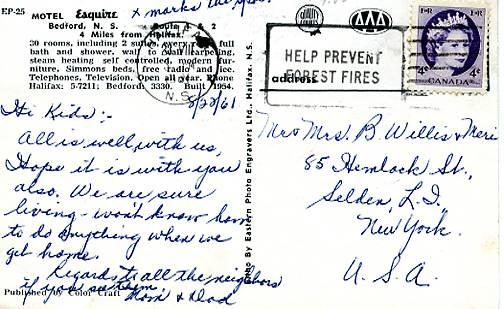 EP-25
x marks the
MOTEL Esquire
Bedford, N. S. Route 1 & 2
4 Miles from Halifax.
30 rooms, including 2 suites, every room full
bath and shower, wall to wall carpeting,
steam heating self controlled, modern fur-
niture, Simmons beds, free radio and ice.
Telephones, Television. Open all year. Phone
Halifax: 5-7211; Bedford 3330. Built 1954.
N.S.
8/22/61
Hi Kids:-
All is well with us,
Hope it is with you
also. We are sure
living - won't know how
to do anything when we
get home.
Regards to all the neighbors
if you see them,
Mom & Dad
Published by Color Craft
Litho By Eastern Photo Engravers Ltd., Halifax, N.S.
AAA
HELP PREVENT
FOREST FIRES
address
4¢ 4¢
CANADA
Mr & Mrs. B. Willis & Meri
85 Hemlock St.,
Selden, L.I.
New York.
U.S.A.